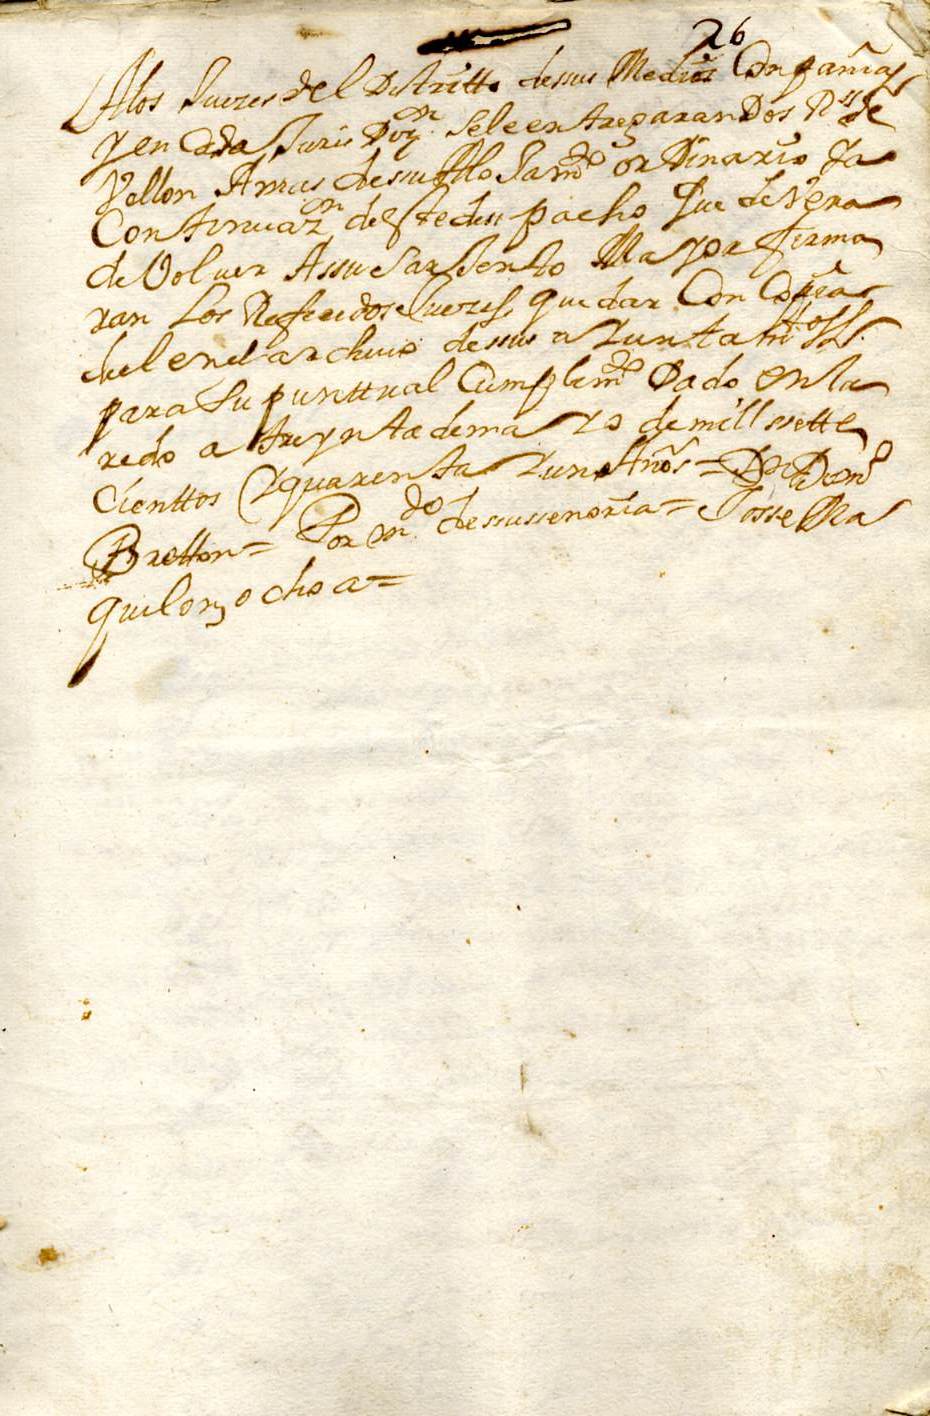 26
Alos Juezes del Distritto desus Medias Compañias
y en Cada Jurisdizn. Se le entregaran Dos Rs. de
Vellon Amas de su Alojamdo ordinario ya
Continuazn de este des pacho que devera
de Volver Assu Sarjento Mayor firma
ran Los Referidos Juezes quedar Con Copia
del en el archivo de sus ayuntamttos
para Su punttual Cumplimdo Dado en la
redo a treynta de mayo de mill sette
Cienttos y quarenta y un Años = Dn Domo
Bretton = Por mdo de su ssenoria = Josse Ma
quilon, ochoa =